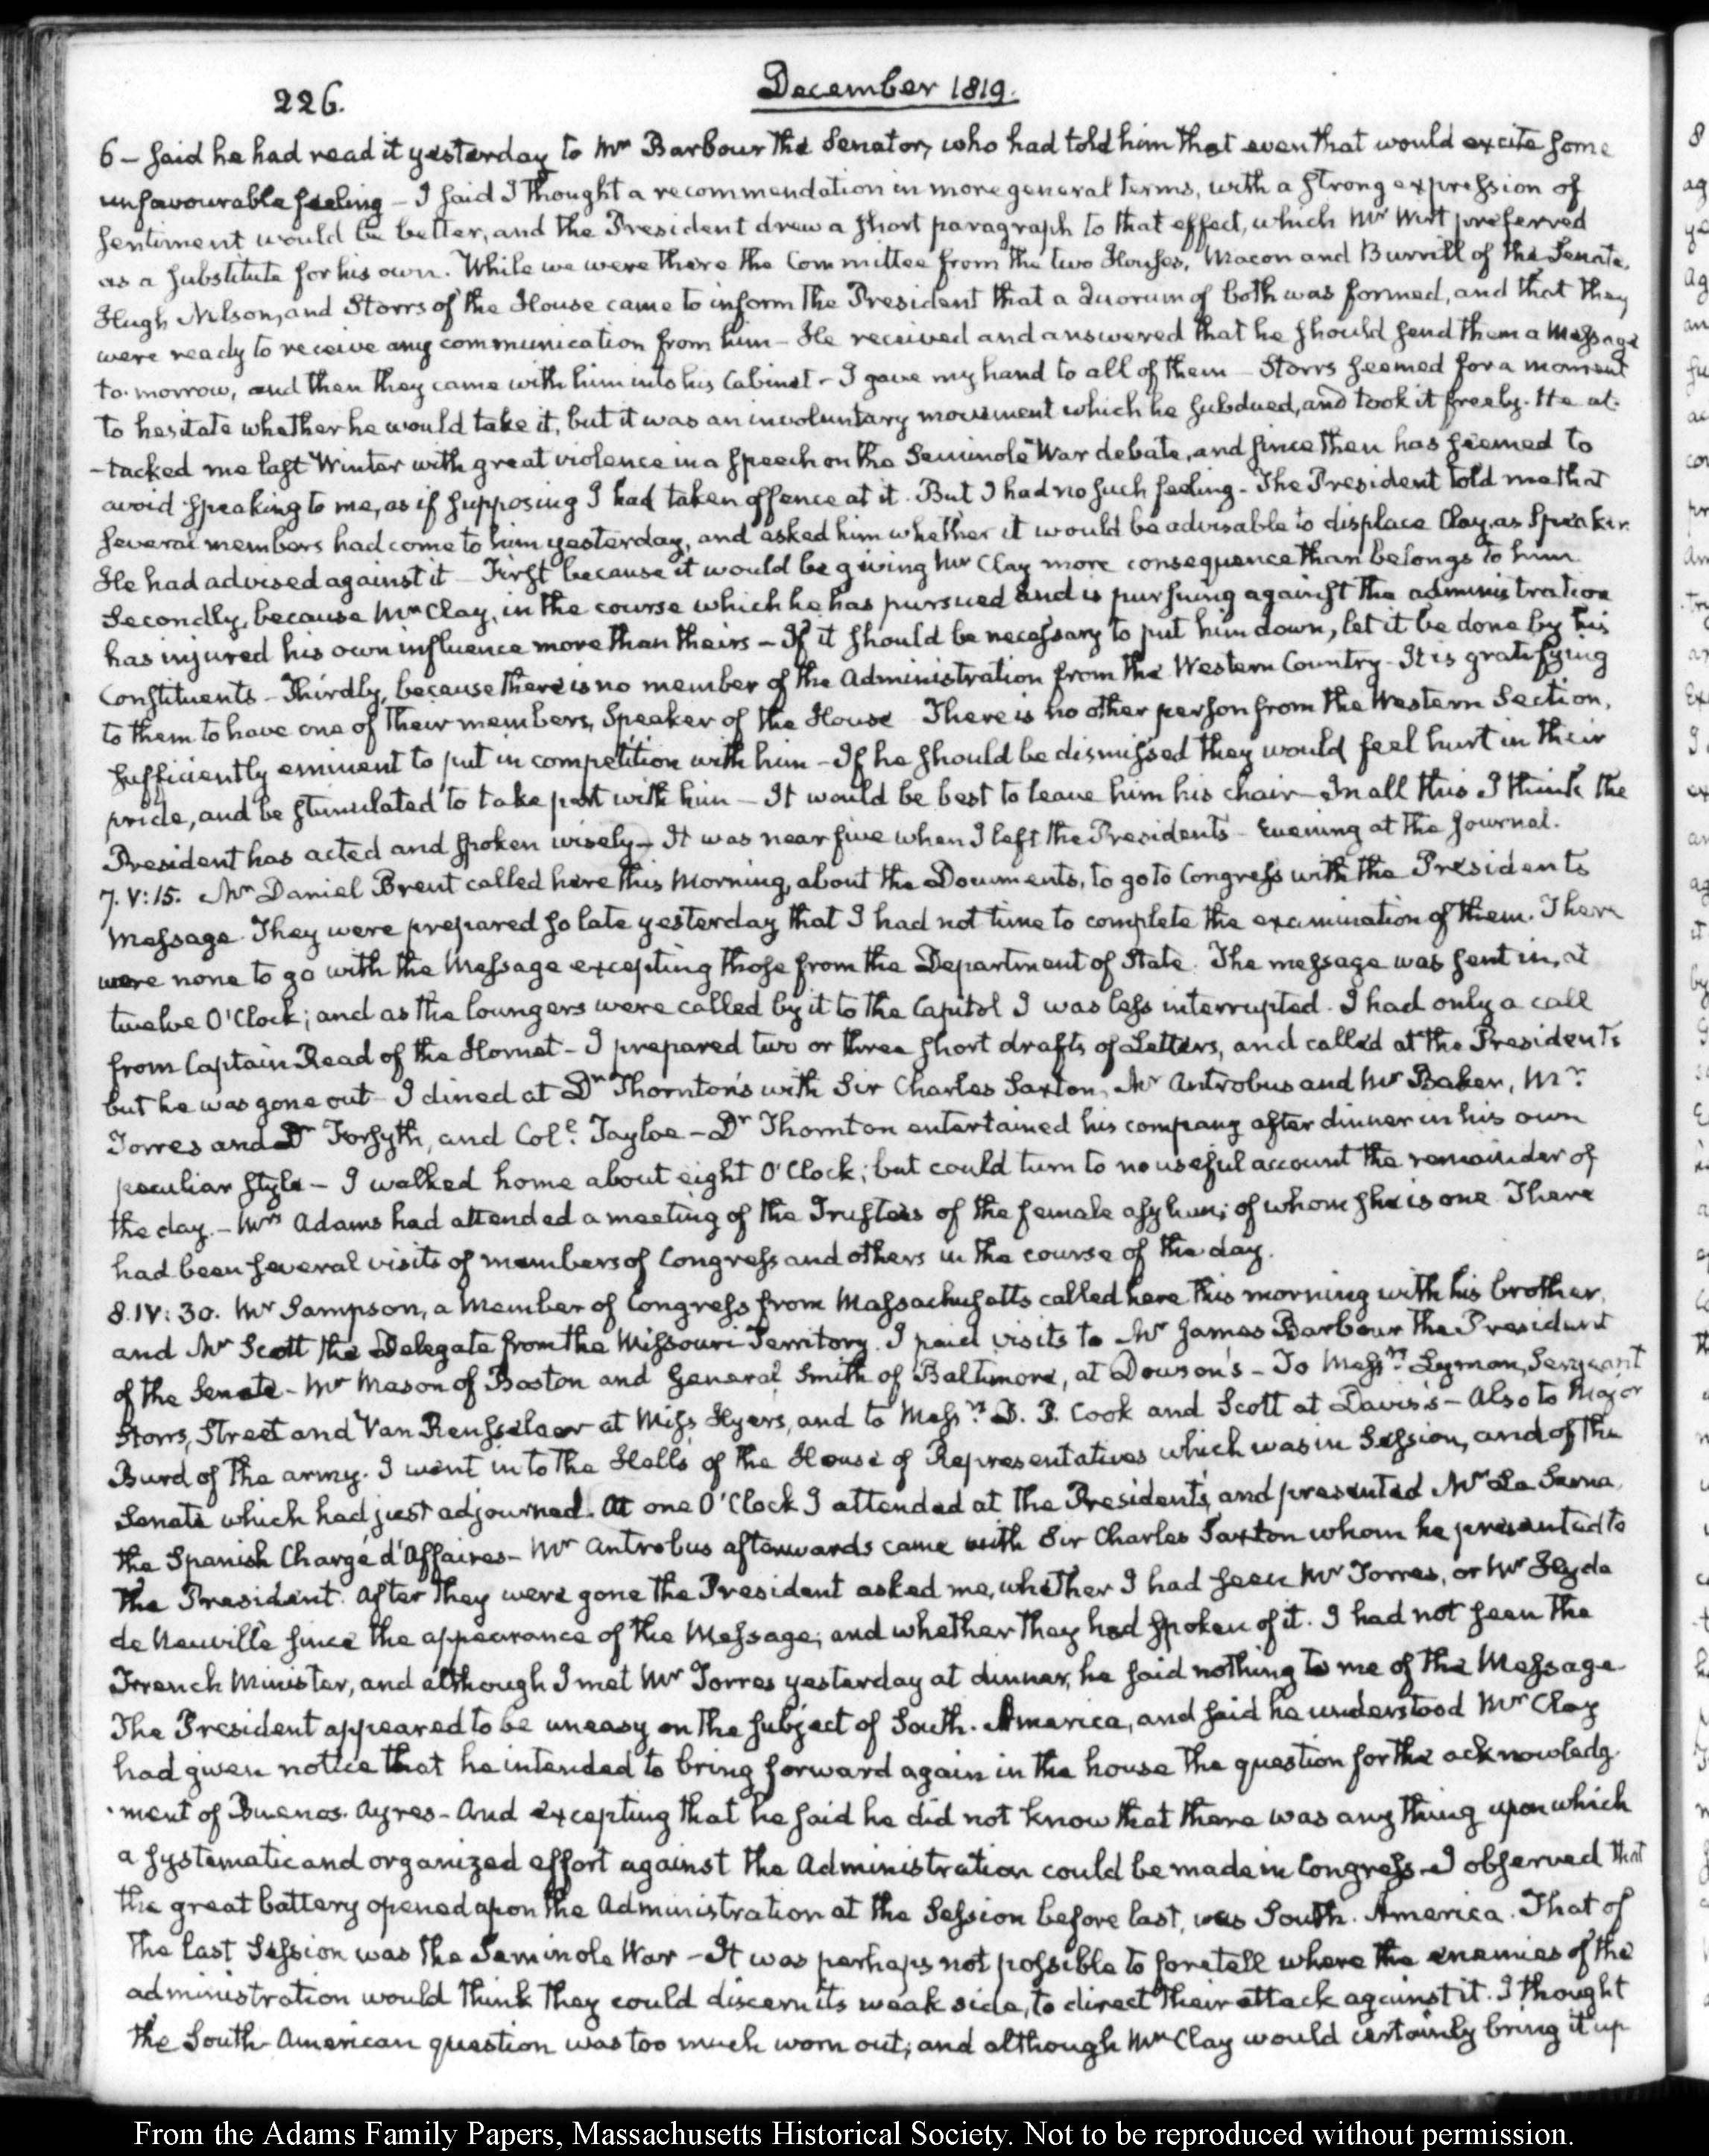 226.
December 1819.
6 – said he had read it yesterday to Mr Barbour the Senator, who had told him that even that would excite some
unfavourable feeling – I said I thought a recommendation in more general terms, with a strong expression of
sentiment would be better, and the President drew a short paragraph to that effect, which Mr Wirt preferred
as a substitute for his own. While we were there the Committee from the two Houses, Macon and Burrill of the Senate,
Hugh Nelson, and Storrs of the House came to inform the President that a quorum of both was formed, and that they
were ready to receive any communication from him – He received and answered that he should send them a Message
to-morrow, and then they came with him into his Cabinet – I gave my hand to all of them – Storrs seemed for a moment
to hesitate whether he would take it, but it was an involuntary movement which he subdued, and took it freely. He at-
-tacked me last Winter with great violence in a speech on the Seminole War debate, and since then has seemed to
avoid speaking to me, as if supposing I had taken offence at it. But I had no such feeling – The President told me that
several members had come to him yesterday, and asked him whether it would be advisable to displace Clay, as Speaker.
He had advised against it – First because it would be giving Mr Clay more consequence than belongs to him
Secondly, because Mr Clay, in the course which he has pursued and is pursuing against the administration
has injured his own influence more than theirs – If it should be necessary to put him down, let it be done by his
Constituents – Thirdly, because there is no member of the Administration from the Western Country – It is gratifying
to them to have one of their members, Speaker of the House There is no other person from the Western Section,
sufficiently eminent to put in competition with him – If he should be dismissed they would feel hurt in their
pride, and be stimulated to take part with him – It would be best to leave him his chair – In all this I think the
President has acted and spoken wisely – It was near five when I left the Presidents – Evening at the Journal.
7. V:15. Mr Daniel Brent called here this Morning, about the Documents, to go to Congress with the Presidents
Message. They were prepared so late yesterday that I had not time to complete the examination of them. There
were none to go with the Message excepting those from the Department of State. The message was sent in, at
twelve O'Clock; and as the loungers were called by it to the Capitol I was less interrupted. I had only a call
from Captain Read of the Hornet – I prepared two or three short drafts of Letters, and called at the Presidents
but he was gone out – I dined at Dr Thornton's with Sir Charles Saxton, Mr Antrobus and Mr Baker, Mr
Torres and Dr Forsyth, and Col.e Tayloe – Dr Thornton entertained his company after dinner in his own
peculiar style – I walked home about eight O'Clock; but could turn to no useful account the remainder of
the day. – Mrs Adams had attended a meeting of the Trustees of the female asylum; of whom she is one There
had been several visits of members of Congress and others in the course of the day.
8. IV:30. Mr Sampson, a Member of Congress from Massachusetts called here this morning with his brother,
and Mr Scott the Delegate from the Missouri Territory. I paid visits to Mr James Barbour the President
of the Senate – Mr Mason of Boston and General Smith of Baltimore, at Dowson's – To Messrs Lyman, Sergeant
Storrs, Street and Van Rensselaer at Miss Hyers, and to Messrs D. P. Cook and Scott at Davis's – Also to Major
Burd of the army. I went into the Halls of the House of Representatives which was in Session, and of the
Senate which had just adjourned. At one O'Clock I attended at the President's, and presented Mr La Serna,
the Spanish Chargé d'Affaires – Mr Antrobus afterwards came with Sir Charles Saxton whom he presented to
the President. After they were gone the President asked me, whether I had seen Mr Torres, or Mr Hyde
de Neuville since the appearance of the Message; and whether they had spoken of it. I had not seen the
French Minister, and although I met Mr Torres yesterday at dinner, he said nothing to me of the Message.
The President appeared to be uneasy on the subject of South-America, and said he understood Mr Clay
had given notice that he intended to bring forward again in the house the question for the acknowledg-
-ment of Buenos-Ayres – And excepting that he said he did not know that there was any thing upon which
a systematic and organized effort against the Administration could be made in Congress – I observed that
the great battery opened upon the Administration at the Session before last, was South-America. That of
the last Session was the Seminole War – It was perhaps not possible to foretell where the enemies of the
administration would think they could discern its weak side, to direct their attack against it. I thought
the South-American question was too much worn out; and although Mr Clay would certainly bring it up
From the Adams Family Papers, Massachusetts Historical Society. Not to be reproduced without permission.